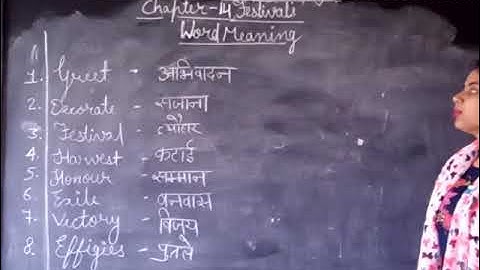 Chapter-14 Festivals
Word Meaning
1. Greet - अभिवादन
2. Decorate - सजाना
3. Festival - त्यौहार
4. Harvest - कटाई
5. Honour - सम्मान
6. Exile - वनवास
7. Victory - विजय
8. Effigies - पुतले